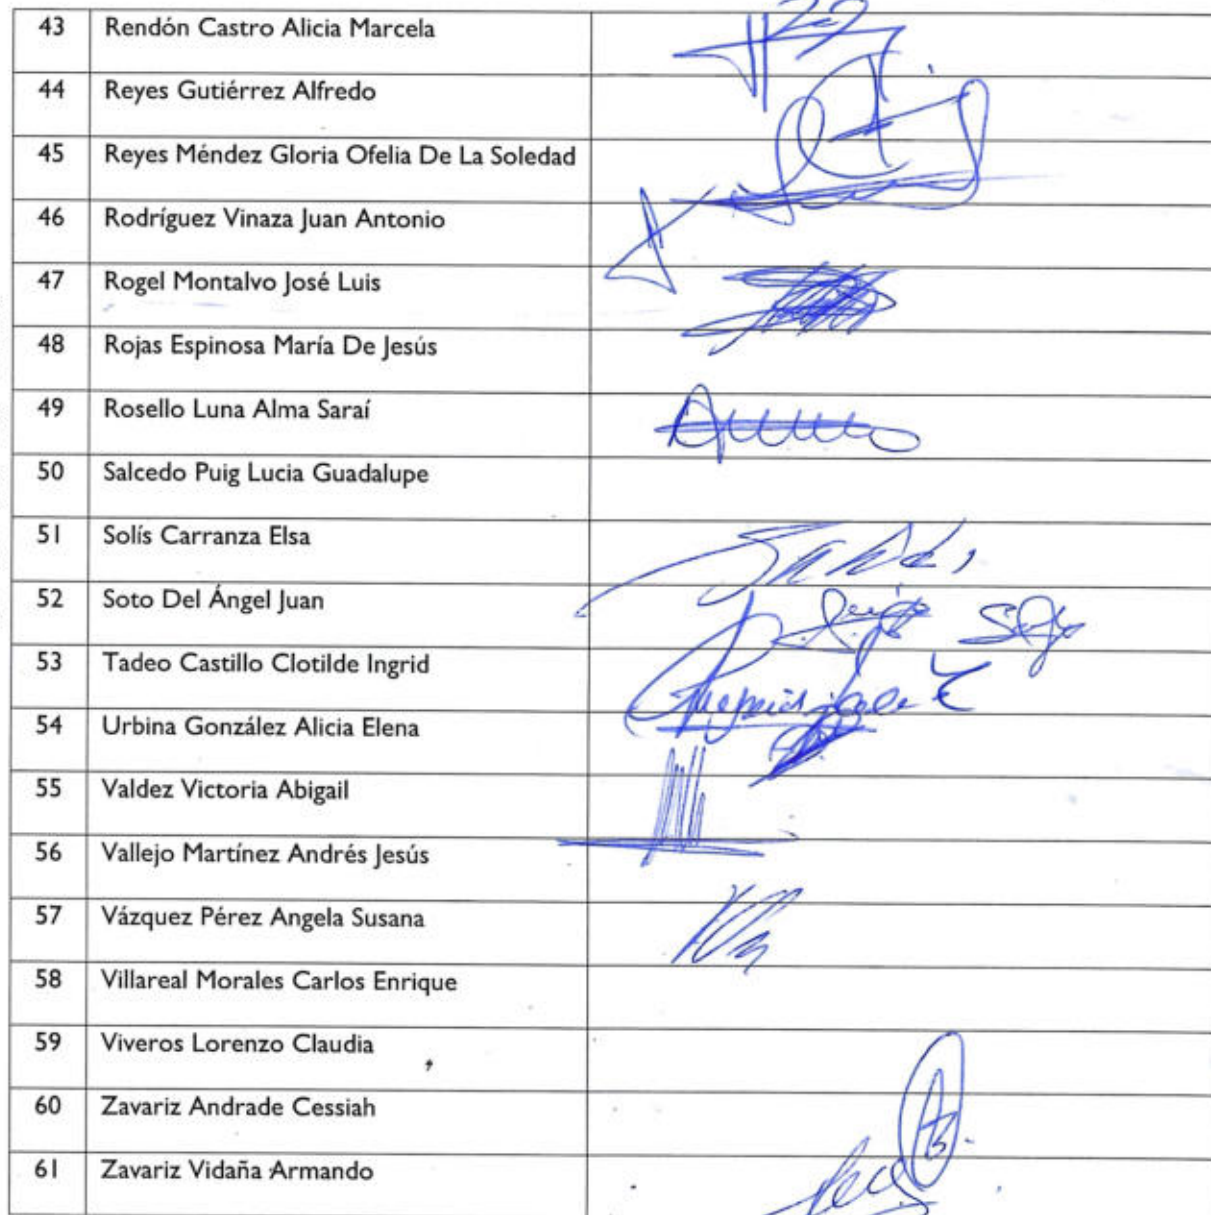 43 Rendón Castro Alicia Marcela
44 Reyes Gutiérrez Alfredo
45 Reyes Méndez Gloria Ofelia De La Soledad
46 Rodríguez Vinaza Juan Antonio
47 Rogel Montalvo José Luis
48 Rojas Espinosa María De Jesús
49 Rosello Luna Alma Saraí
50 Salcedo Puig Lucia Guadalupe
51 Solís Carranza Elsa
52 Soto Del Ángel Juan
53 Tadeo Castillo Clotilde Ingrid
54 Urbina González Alicia Elena
55 Valdez Victoria Abigail
56 Vallejo Martínez Andrés Jesús
57 Vázquez Pérez Angela Susana
58 Villareal Morales Carlos Enrique
59 Viveros Lorenzo Claudia
60 Zavariz Andrade Cessiah
61 Zavariz Vidaña Armando